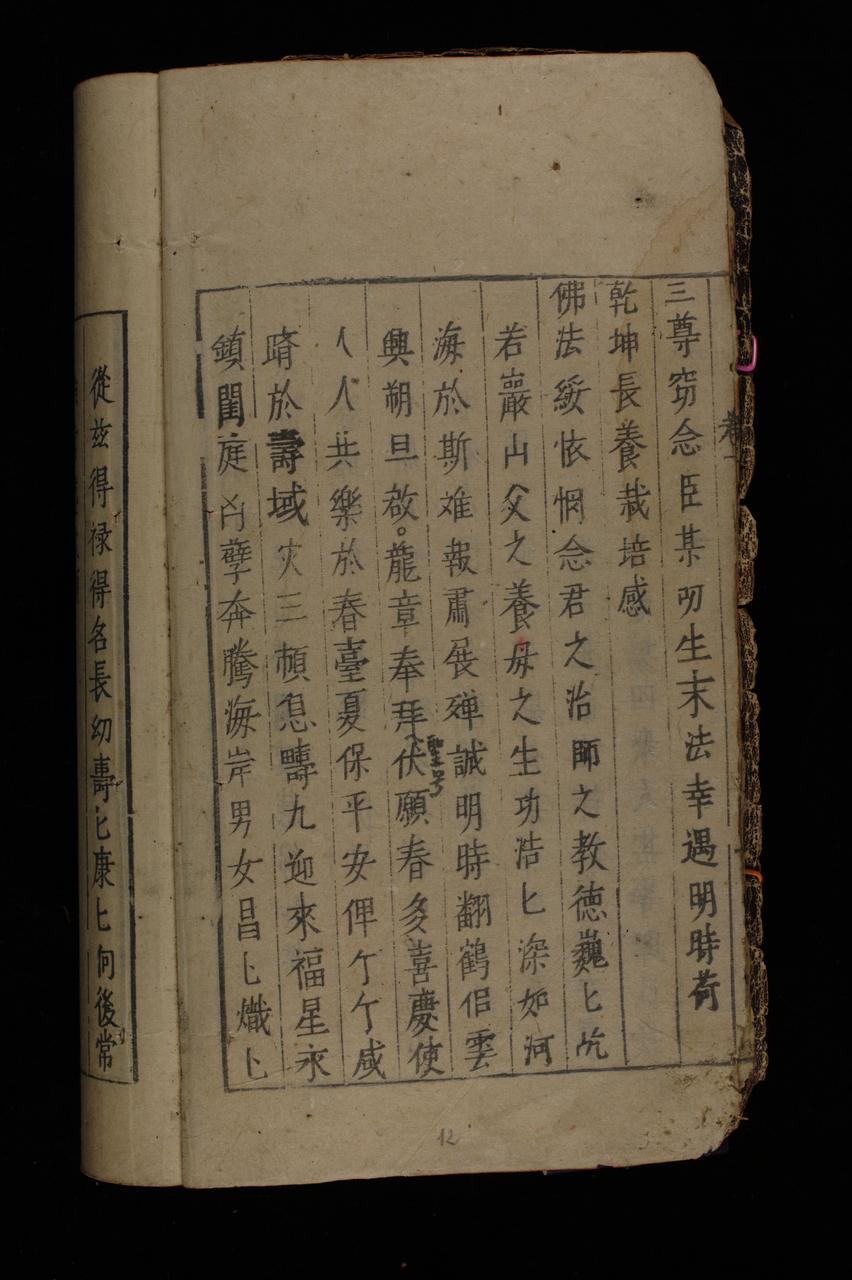 卷一
三尊窃念臣某叨生末法幸遇明時荷
乾坤長養栽培感
佛法綏懷惘念君之治師之教德巍匕屹
若巖山父之養母之生功浩匕深如河
海於斯难報肅展殫誠明時翻鶴侣雲
興朔旦啟龍章奉拜伏願春多喜慶使
聖号
人人共樂於春臺夏保平安俾个个咸
躋於壽域灾三頓息疇九迎來福星永
鎮閨庭凶孽奔騰海岸男女昌匕熾匕
從兹得禄得名長幼壽匕康匕向後常
12